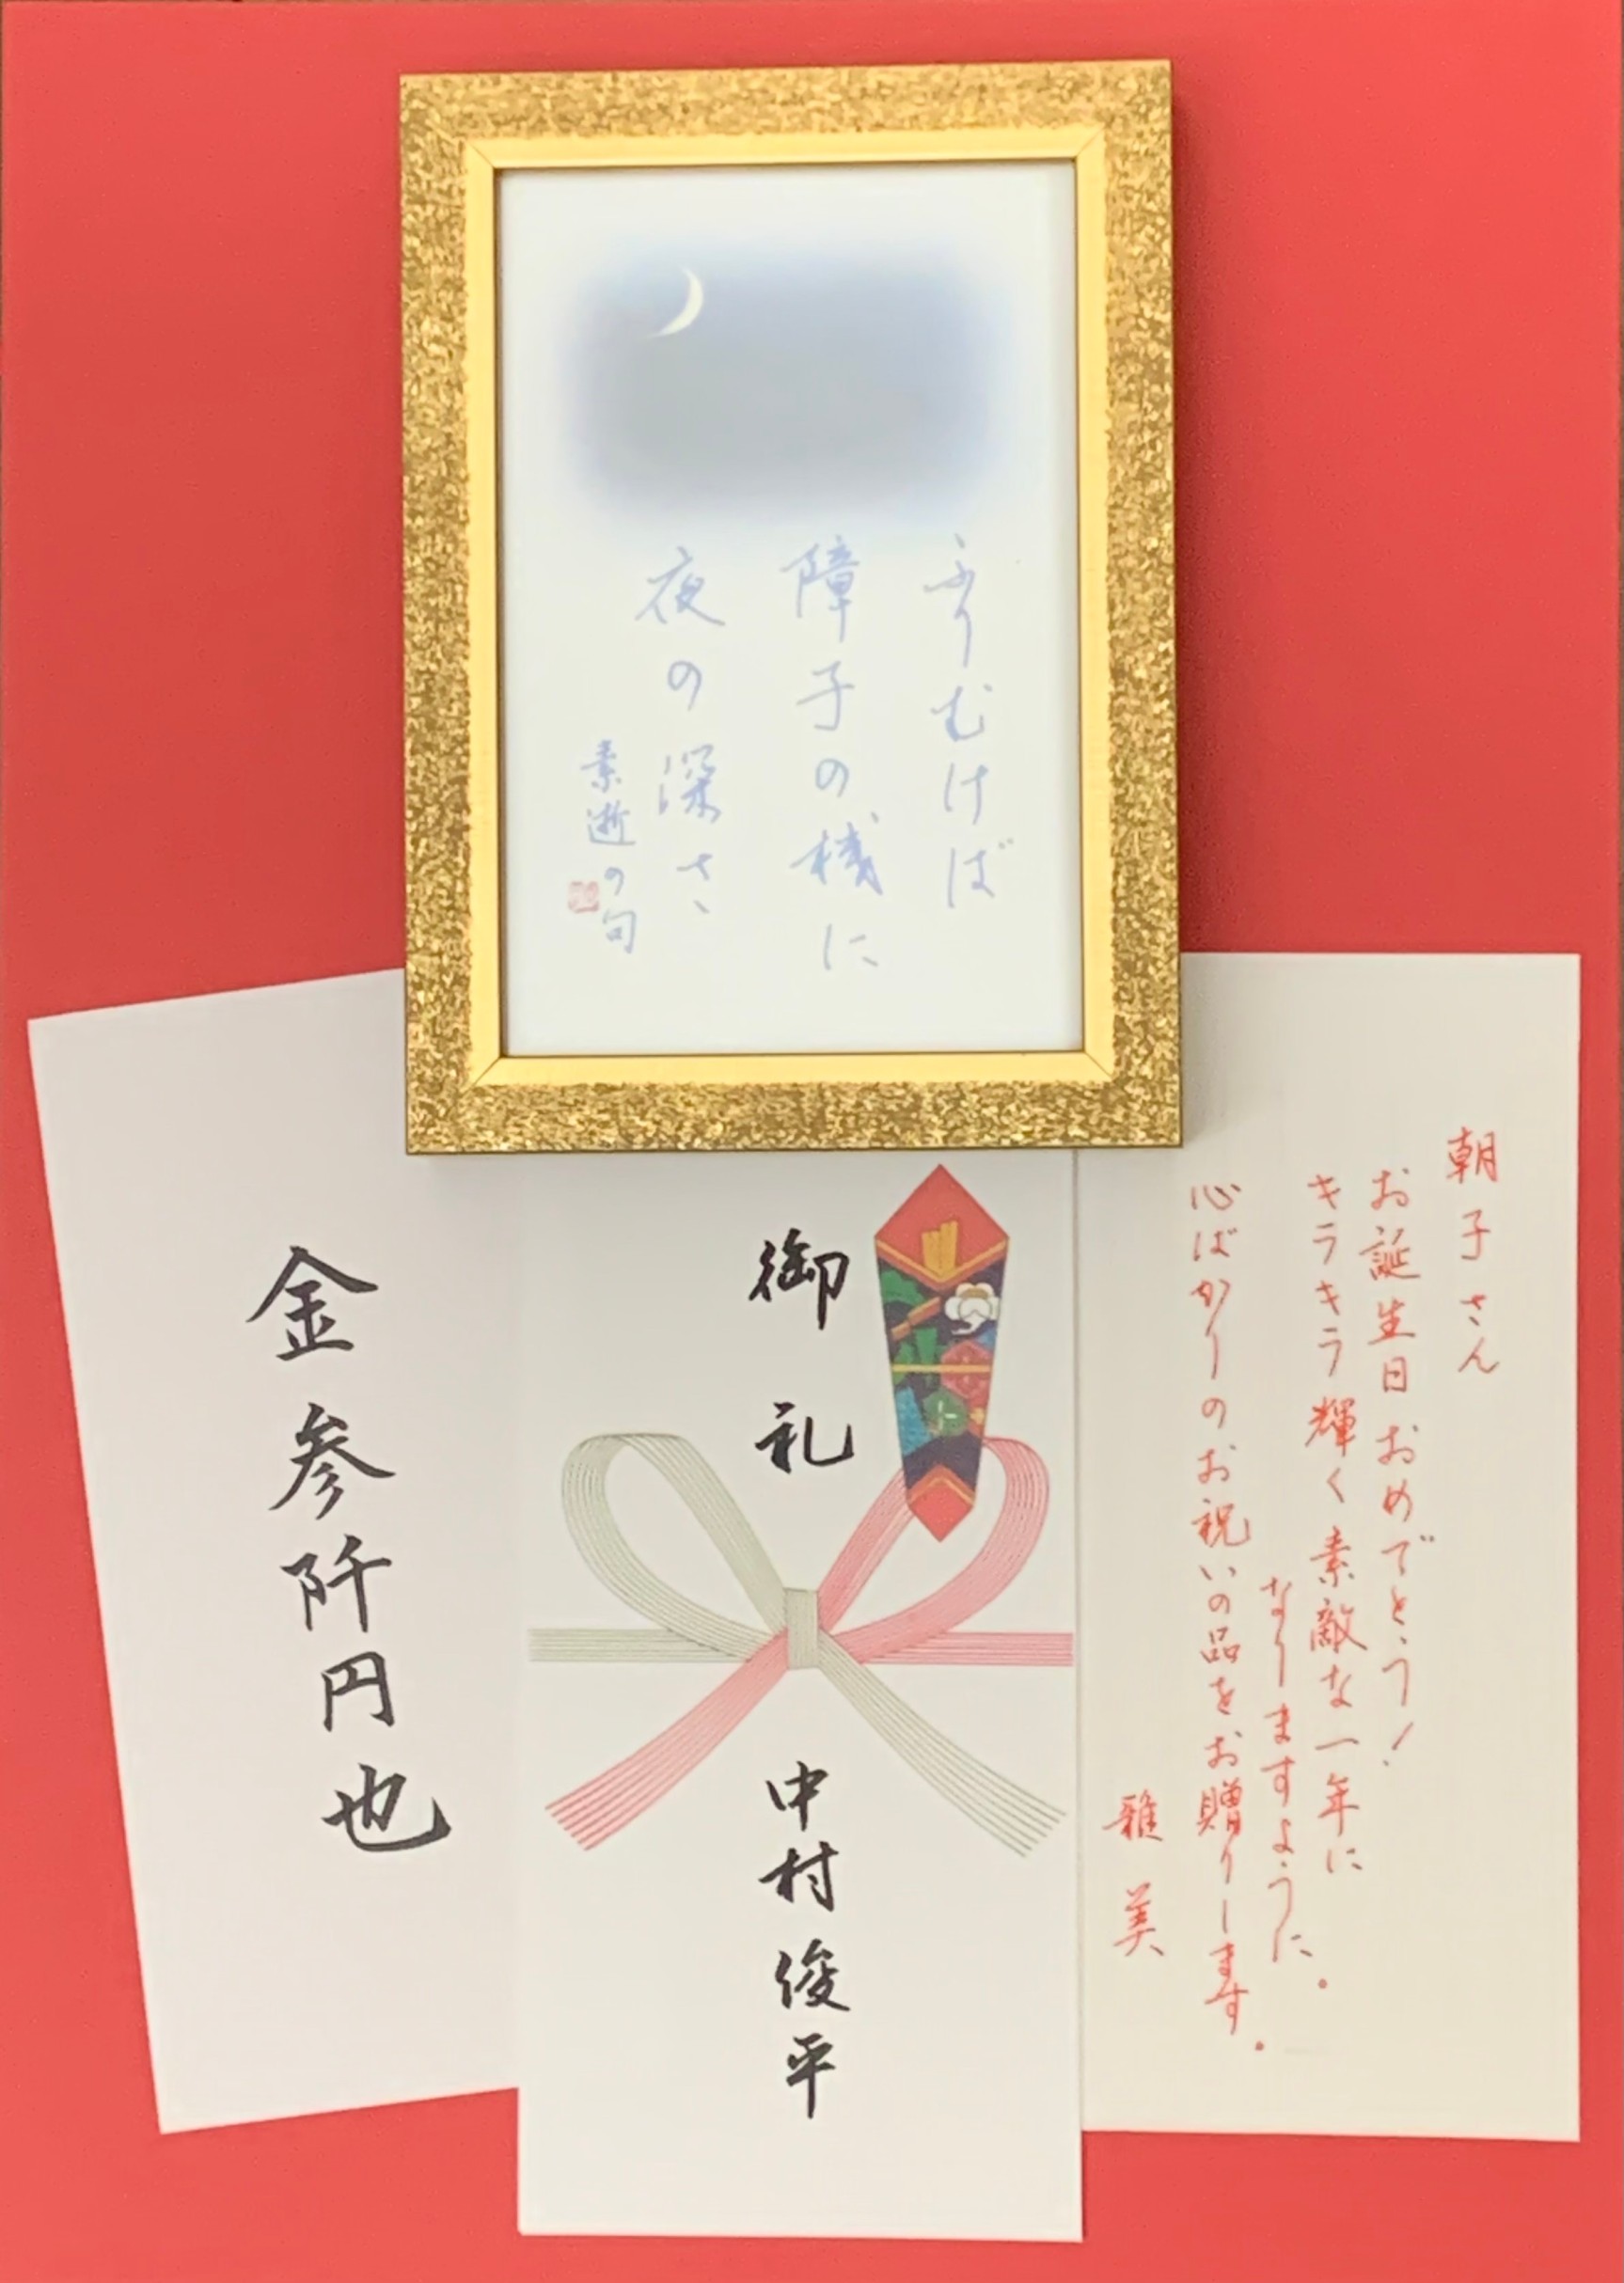 ふりむけば
障子の桟に
夜の深さ
素逝の句
朝子さん
お誕生日おめでとう！
キラキラ輝く素敵な一年に
なりますように。
心ばかりのお祝いの品をお贈りします。
雅美
御礼
中村俊平
金参阡円也